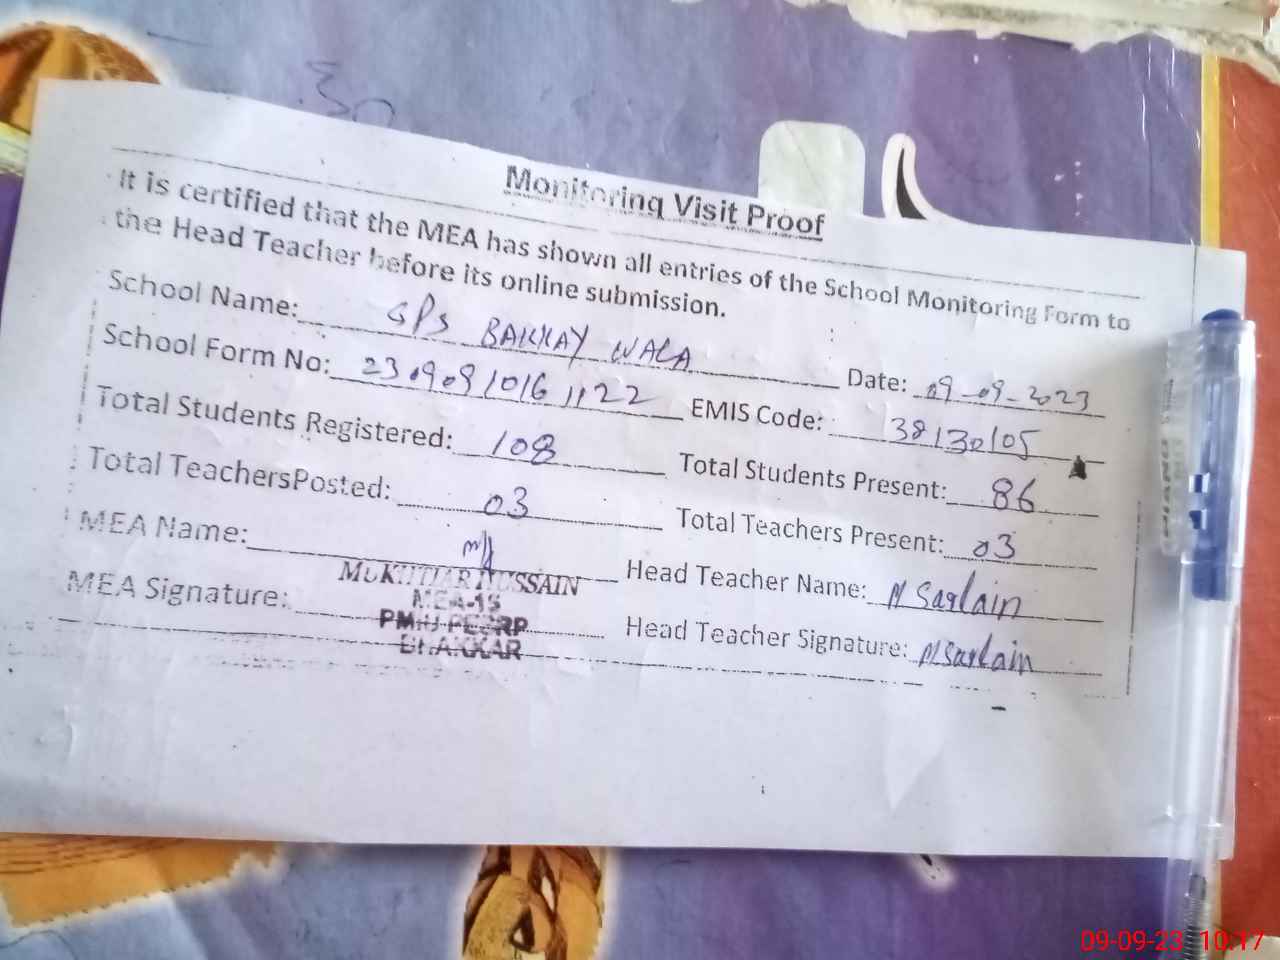 30
Monitoring Visit Proof
It is certified that the MEA has shown all entries of the School Monitoring Form to
the Head Teacher before its online submission.
School Name: GPS BAKKAY WALA Date: 09-09-2023
School Form No: 23090910161122 EMIS Code: 38130105
Total Students Registered: 108 Total Students Present: 86
Total TeachersPosted: 03 Total Teachers Present: 03
MEA Name: Head Teacher Name: M Saqlain
MUKHTIAR HUSSAIN
MEA-15
MEA Signature: Head Teacher Signature: M Saqlain
PMIU-PESRP
BHAKKAR
PIANO
09-09-23 10:17